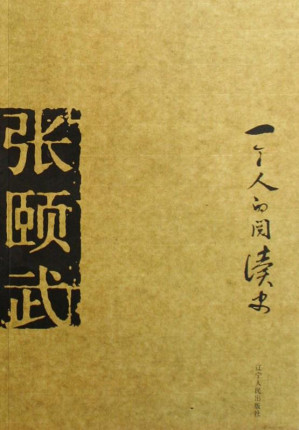 一个人的阅读史
张颐武
辽宁人民出版社